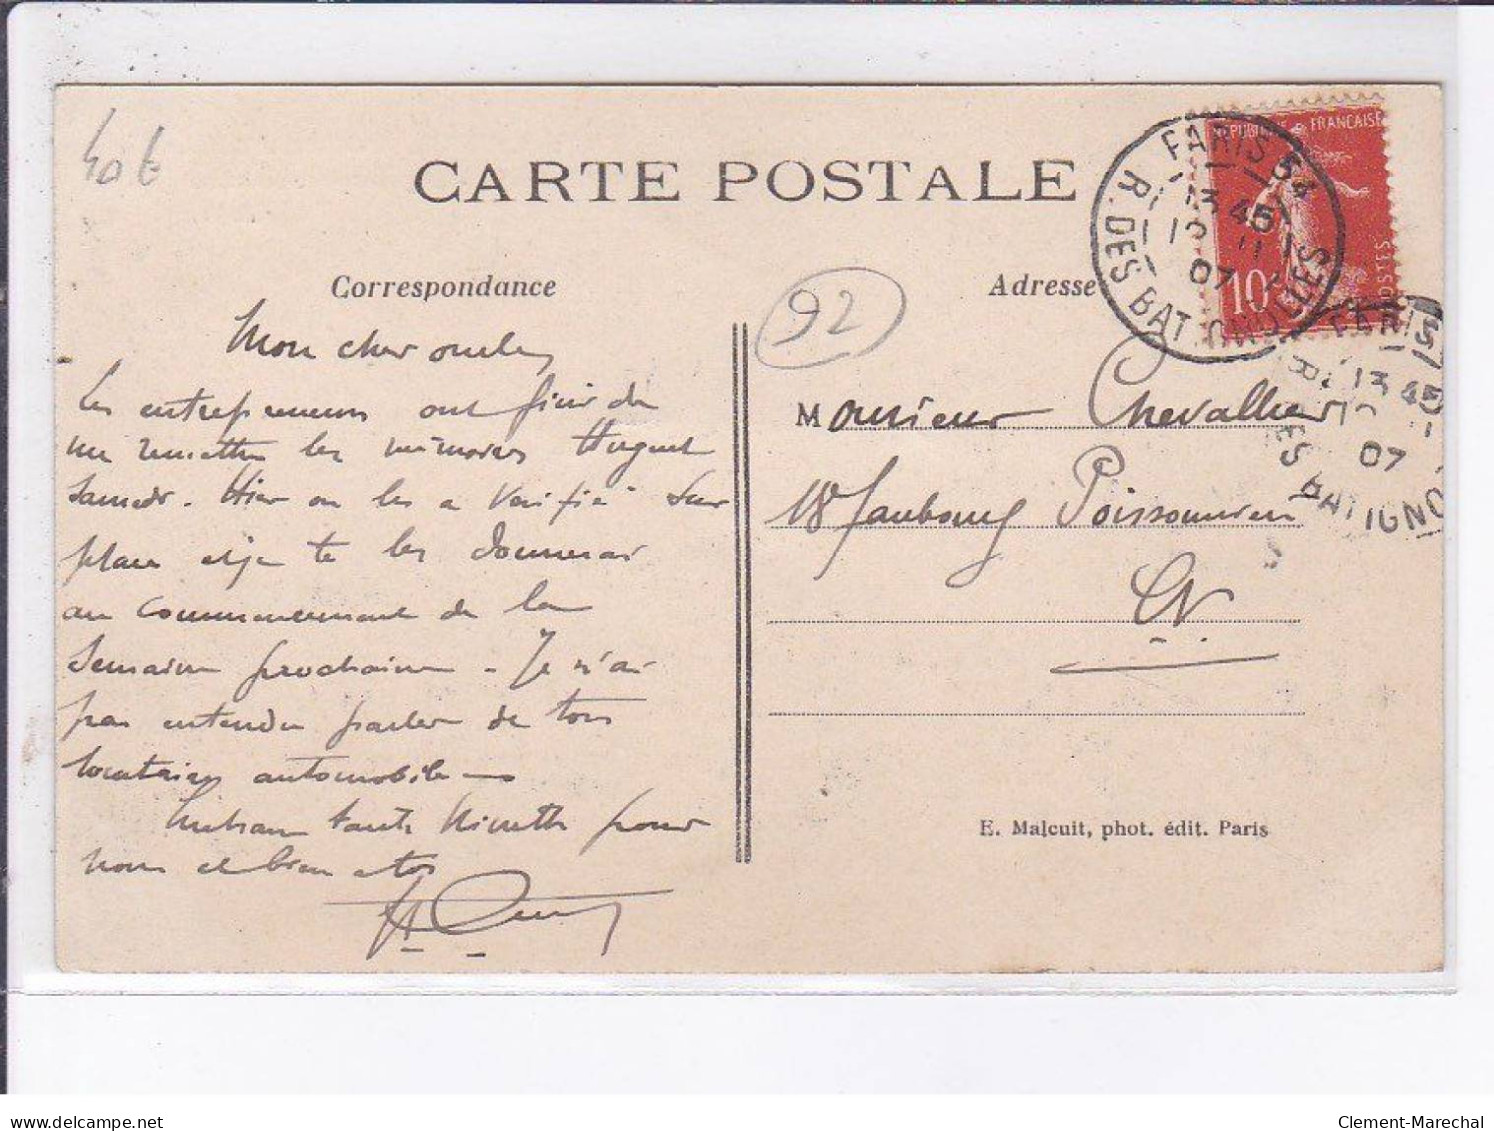 40 €
CARTE POSTALE
Correspondance
Adresse
92
RÉPUBLIQUE FRANÇAISE
POSTES
10
PARIS 54
R. DES BATIGNOLLES
13 45
12 11
07
PARIS 5
13 45
07
R DES BATIGNO
Mon cher
Les entrepreneurs ont fini de
me remettre les mémoires Huguet
samedi. Hier on les a vérifié sur
place et je te les donnerai
au commencement de la
semaine prochaine. Je n'ai
pas entendu parler de tous
locataires automobile
pour
nous et bien à toi
Monsieur Chevallier
Faubourg Poissonnière
E. Malcuit, phot. édit. Paris
delcampe.net
Clement-Marechal